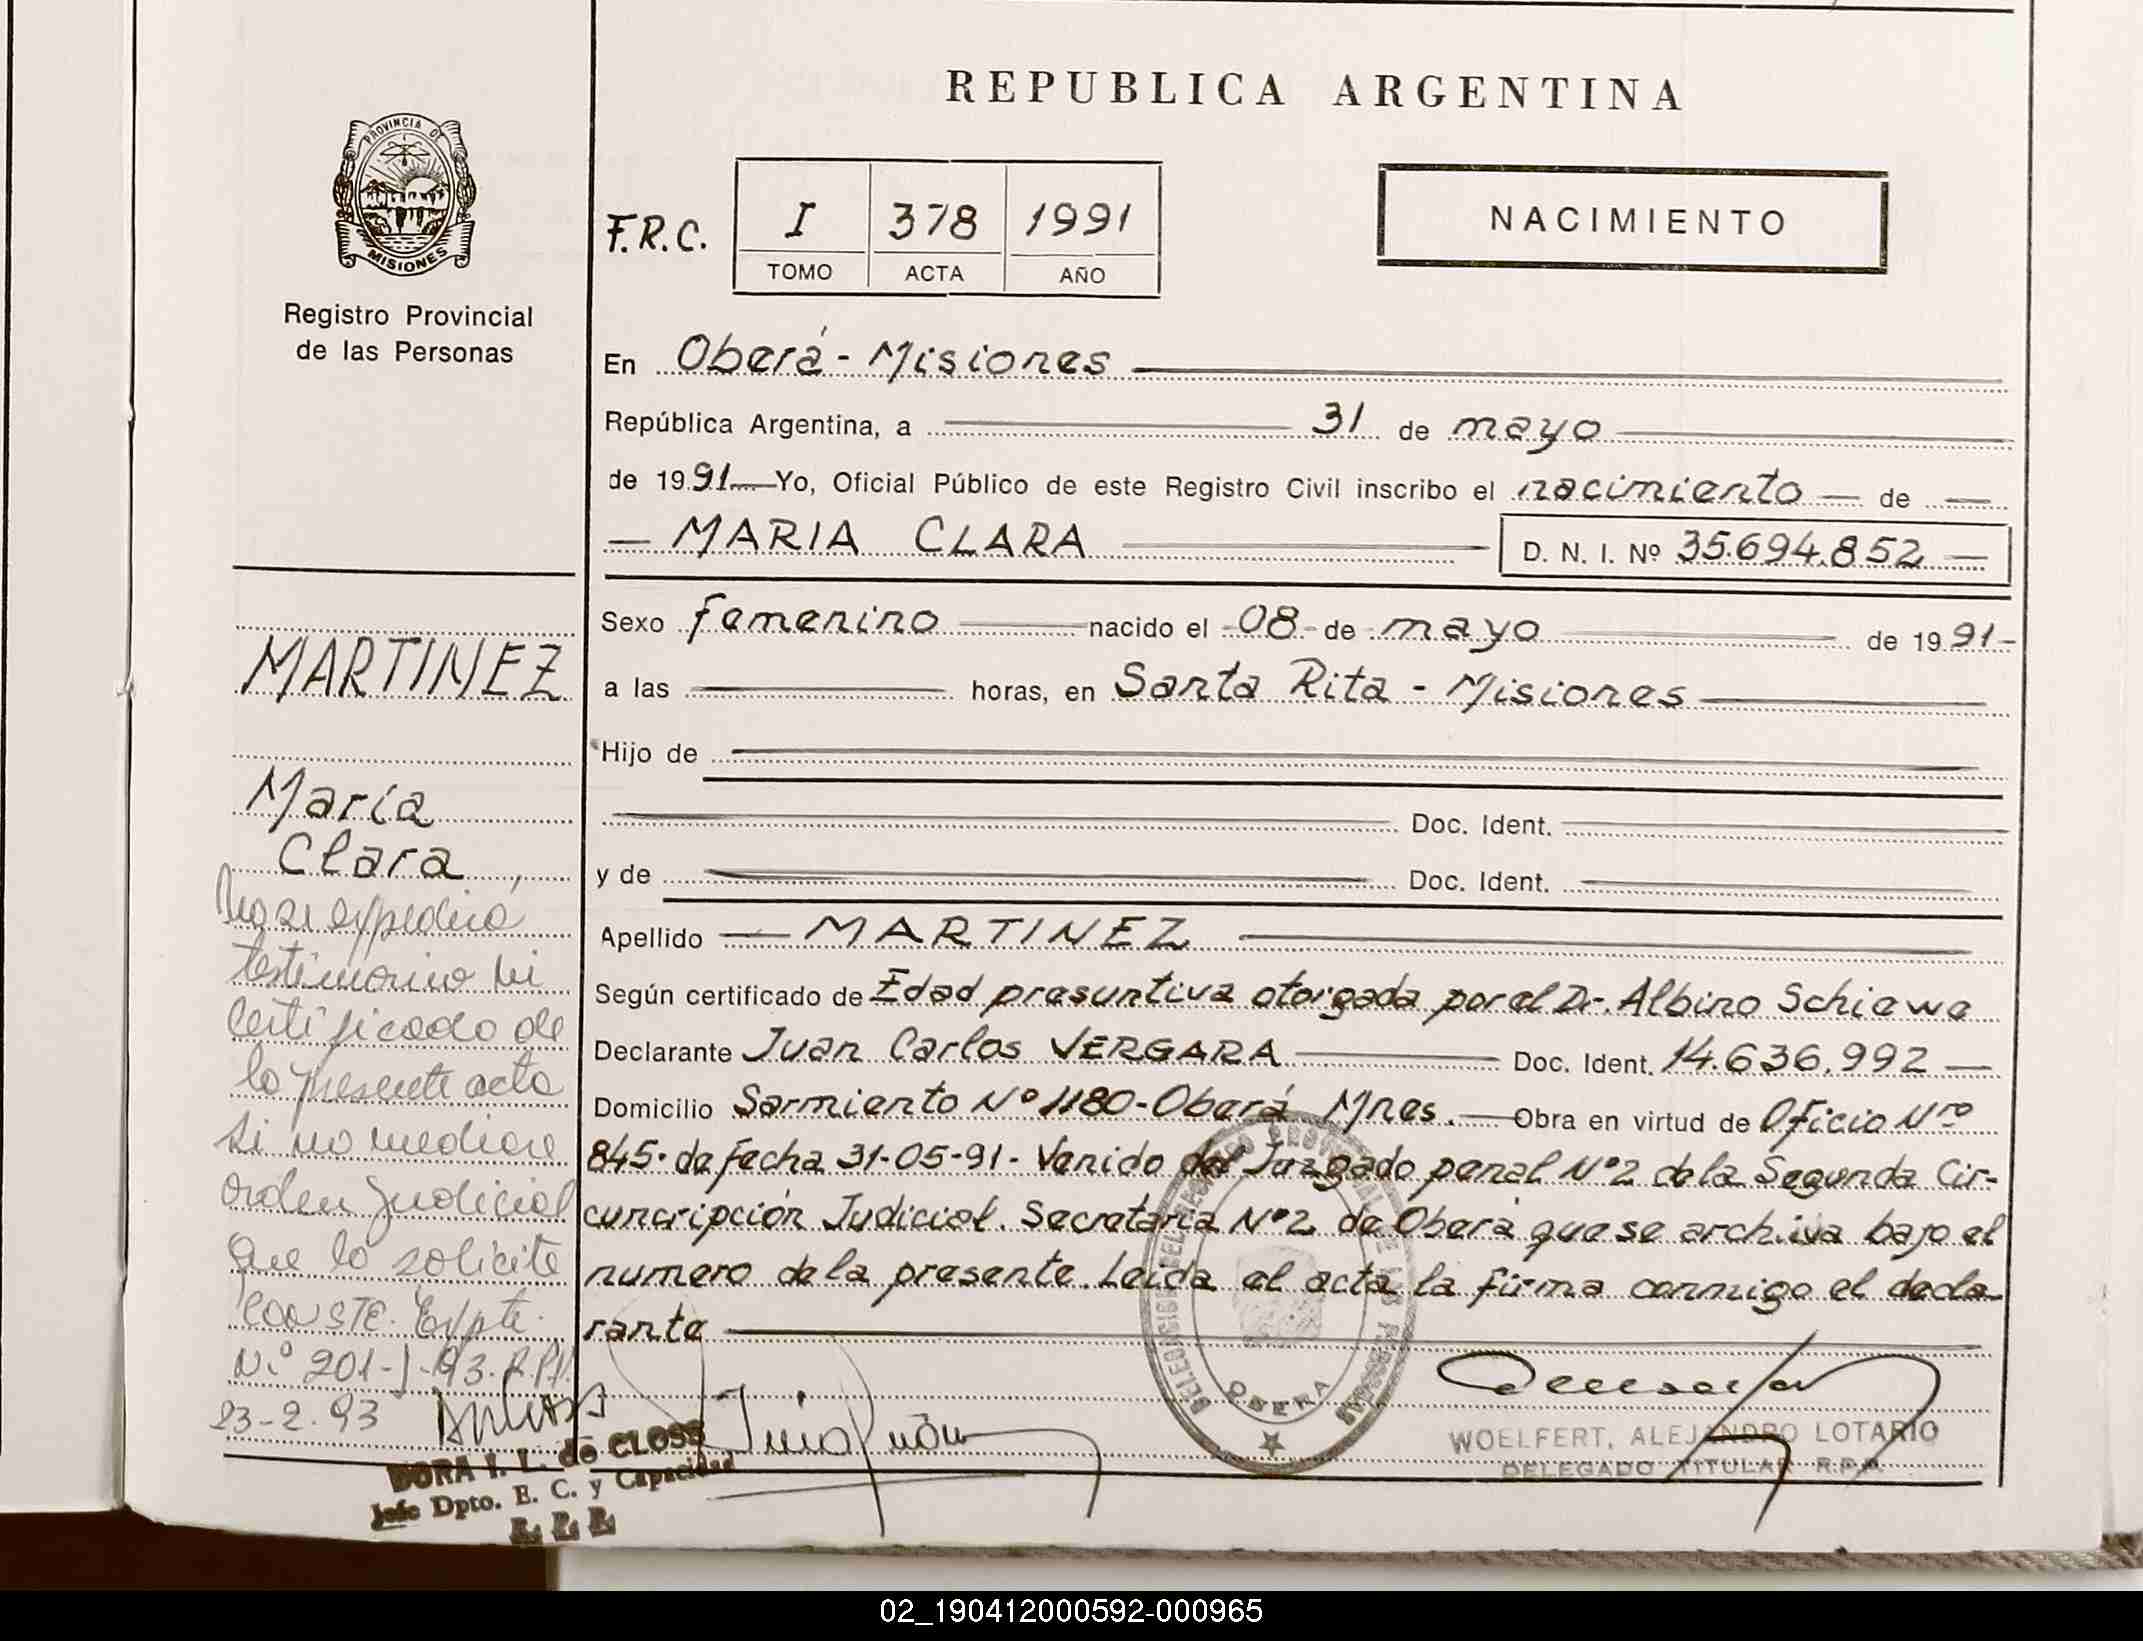 REPUBLICA ARGENTINA
PROVINCIA DE
MISIONES
Registro Provincial
de las Personas
F.R.C.
I 378 1991
TOMO ACTA AÑO
NACIMIENTO
En Oberá - Misiones
República Argentina, a 31 de mayo
de 1991 Yo, Oficial Público de este Registro Civil inscribo el nacimiento de
MARIA CLARA D. N. I. Nº 35.694.852
Sexo femenino nacido el 08 de mayo de 1991
a las horas, en Santa Rita - Misiones
Hijo de
Doc. Ident.
y de Doc. Ident.
Apellido MARTINEZ
Según certificado de Edad presuntiva otorgada por el Dr. Albino Schiewe
Declarante Juan Carlos VERGARA Doc. Ident. 14.636.992
Domicilio Sarmiento Nº 1180 - Oberá Mnes. Obra en virtud de Oficio Nro
845. de fecha 31-05-91 - Venido del Juzgado penal Nº2 de la Segunda Cir-
cuncripción Judicial. Secretaria Nº2 de Oberá que se archiva bajo el
numero de la presente. Leida el acta la firma conmigo el decla-
rante
MARTINEZ
María
Clara
No se expedirá
testimonio ni
certificado de
la presente acta
si no mediare
orden judicial
que lo solicite
CONSTE. Expte.
N.º 201-J-93. R.P.P.
23-2-93
DORA I. L. de CLOSS
Jefe Dpto. E. C. y Capacidad
R. P. P.
OBERA
WOELFERT, ALEJANDRO LOTARIO
DELEGADO TITULAR R.P.P.
02_190412000592-000965